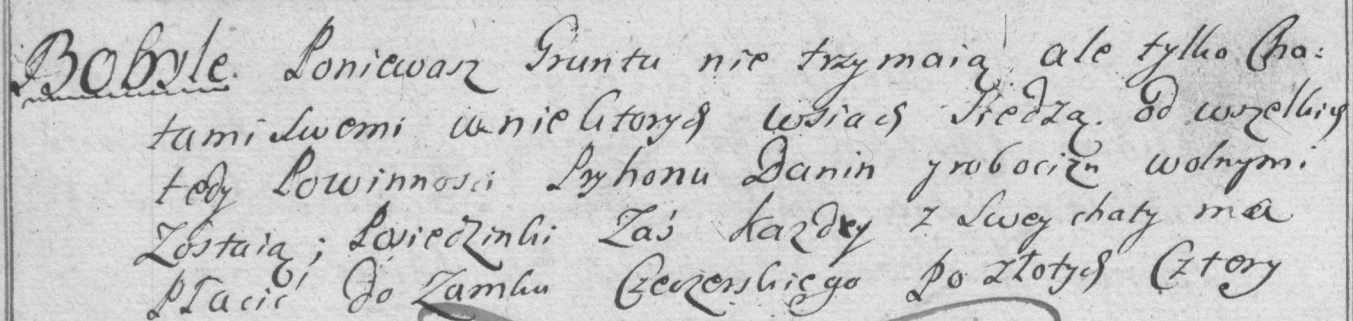 Bobyle. Poniewasz Gruntu nie trzymaią ale tylko Cha:
tami Swemi w niektorych wsiach Siedzą. od wszelkich
tedy Powinnosci Pryhonu Danin y robocizn wolnymi
Zostaią; Posiedzinki Zaś każdy z Swey chaty ma
Płacić do Zamku Czeczerskiego po złotych Cztery